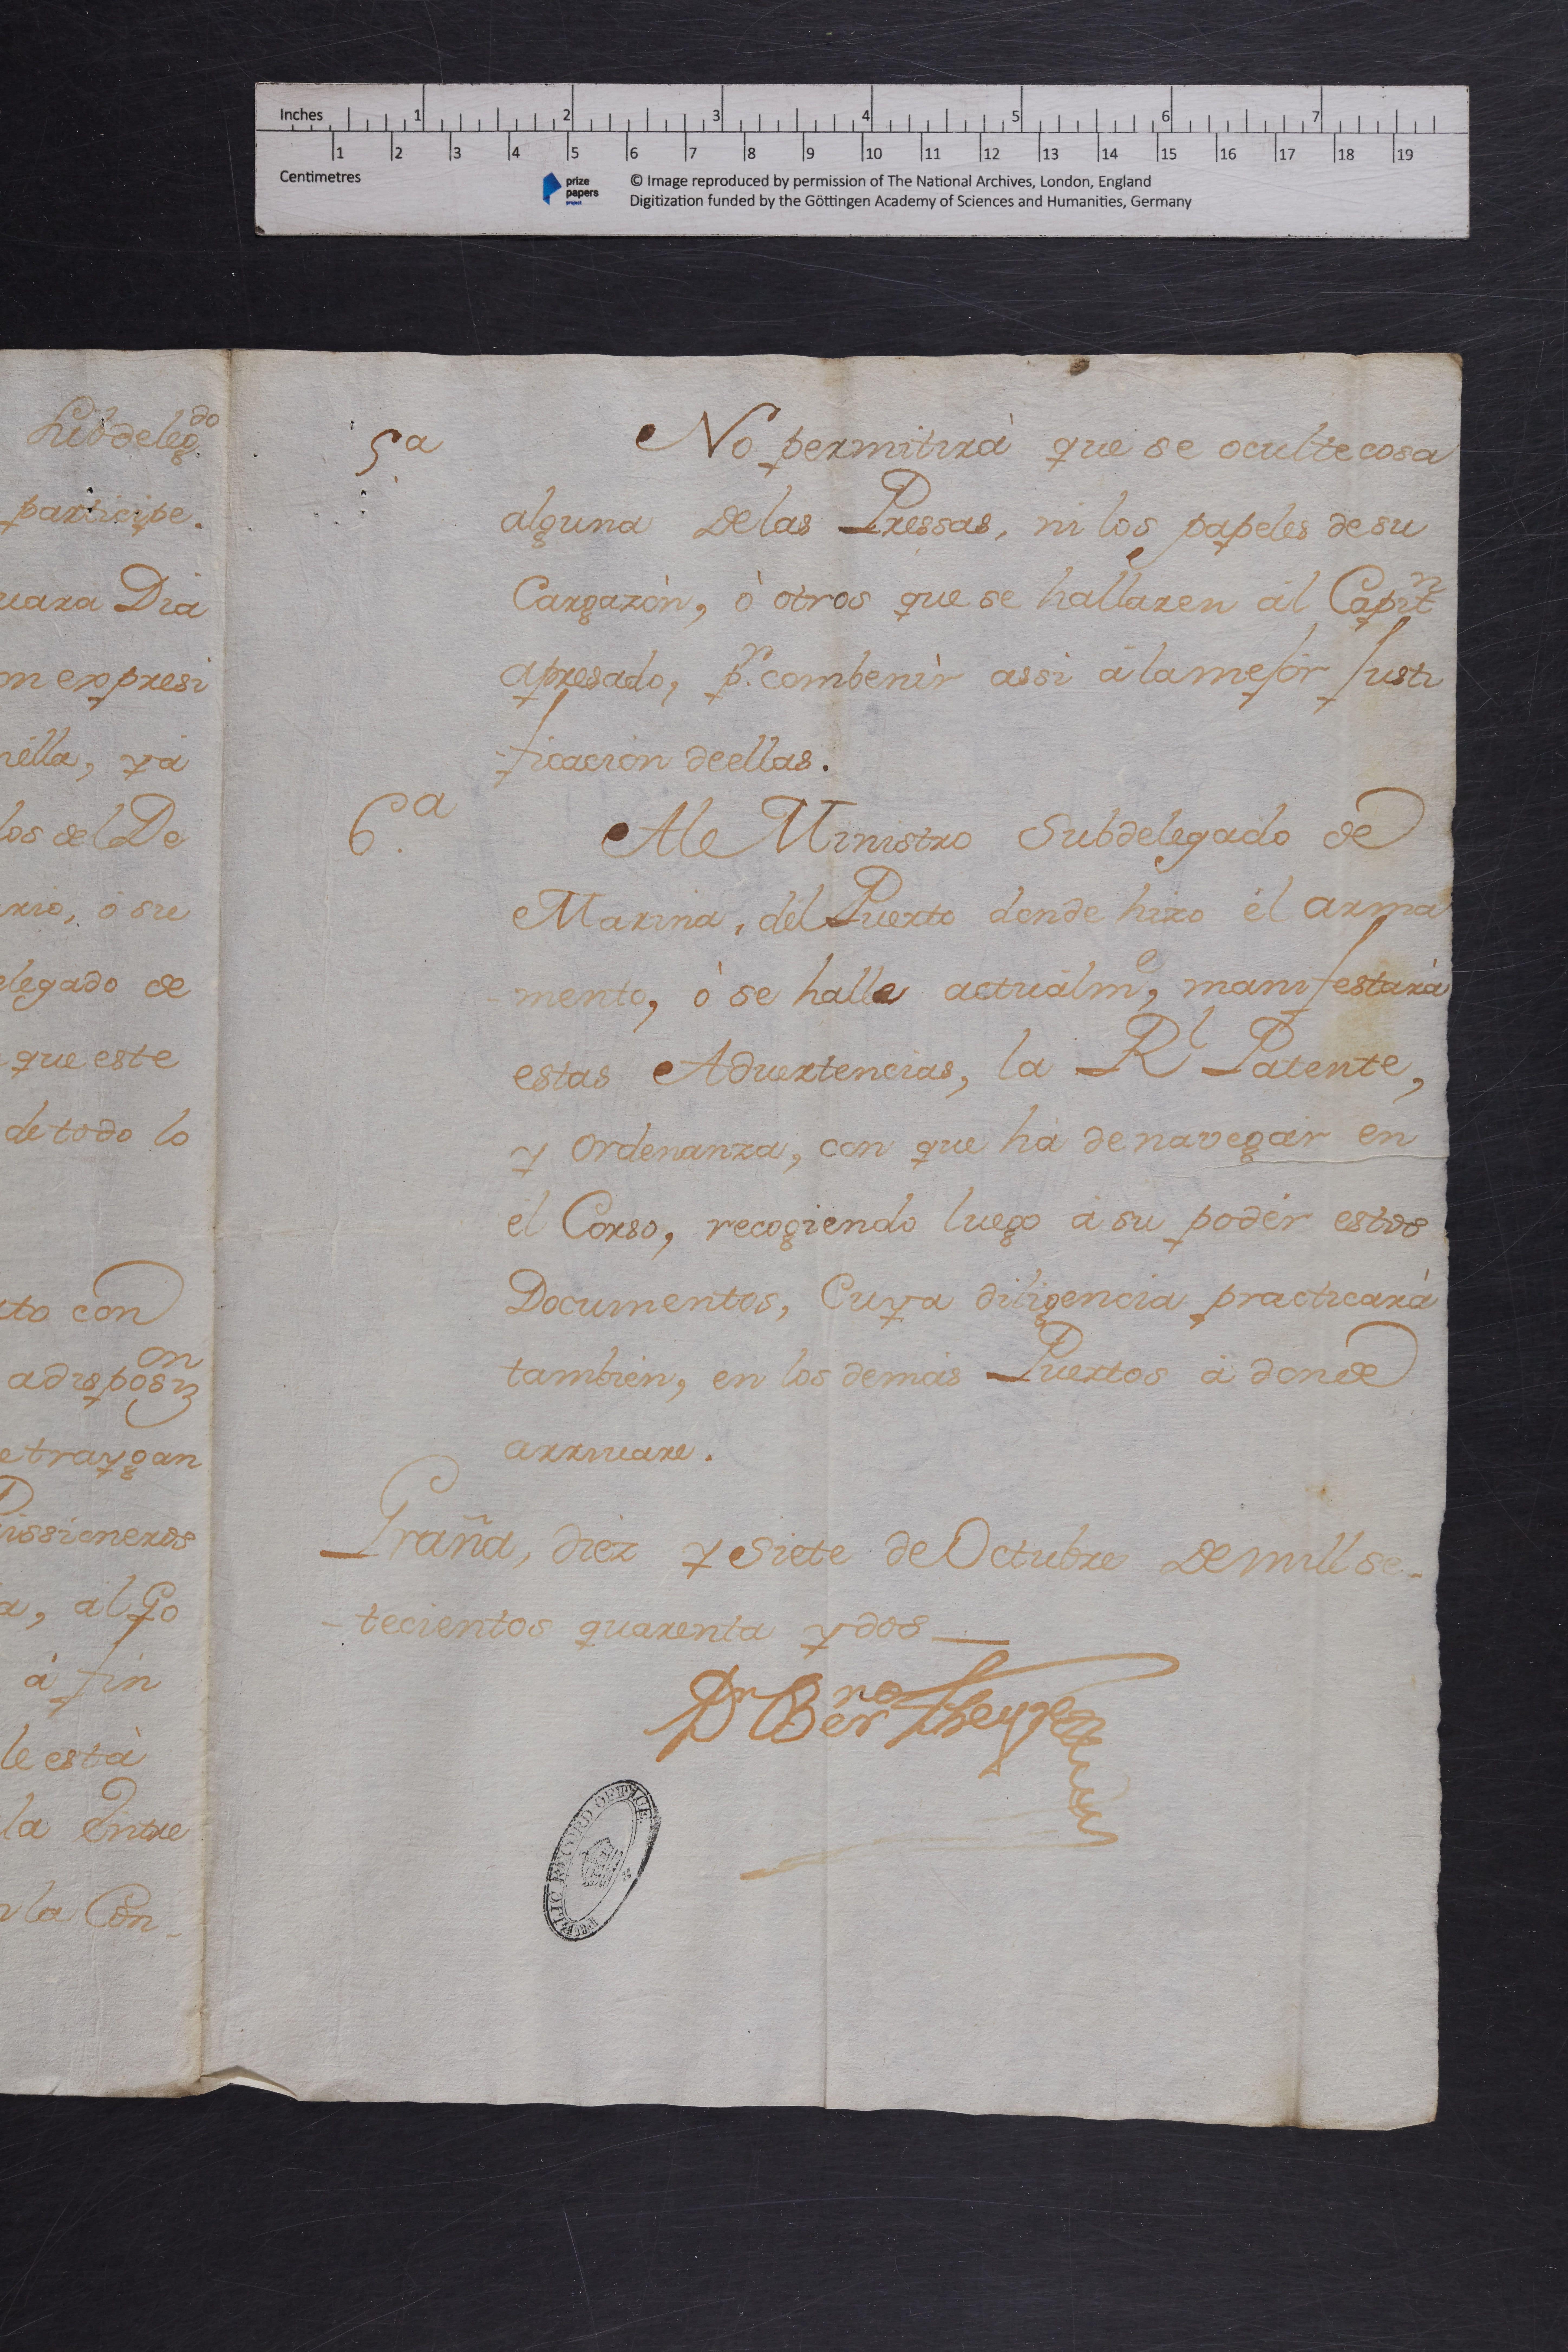 Inches 1 2 3 4 5 6 7
1 2 3 4 5 6 7 8 9 10 11 12 13 14 15 16 17 18 19
Centimetres
prize papers project
© Image reproduced by permission of The National Archives, London, England
Digitization funded by the Göttingen Academy of Sciences and Humanities, Germany
Subdeleg.do
participe.
uara Dia
on expresi
nella, y á
los del De
ario, ó su
elegado de
que este
de todo lo
to con
a disposiz.on
e traygan
rissioneros
a, al Go
á fin
le està
la Entre
n la Con-
5.a No permitirà que se oculte cosa
alguna de las Pressas, ni los papeles de su
Cargazòn, ò otros que se hallaren al Capitn
apresado, pr. combenìr assi á la mejór Justi
-ficación de ellas.
6.a Al Ministro Subdelegado de
Marina, del Puerto donde hizo él arma
-mento, ò se halle actualme, manifestará
estas Aduertencias, la Rl Patente,
y Ordenanza, con que ha de navegár en
él Corso, recogiendo luego á su podér estos
Documentos, Cuya diligencia practicará
tambien, en los demás Puertos á donde
arriuare.
Graña, diez y Siete de Octubre de mill se-
-tecientos quarenta y dos
Dn Berno
PUBLIC RECORD OFFICE